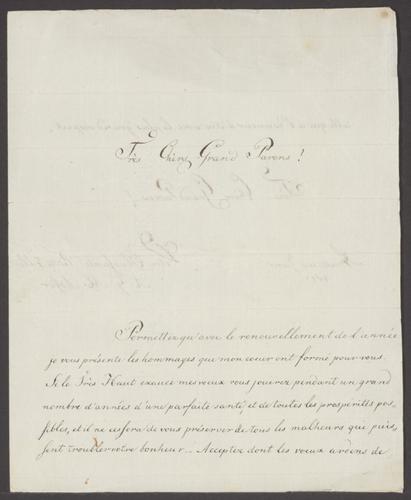 Très Chers Grand Parens!
Permettez qu'avec le renouvellement de l'année
je vous présente les hommages que mon coeur ont formé pour vous.
Si le Très Haut exauce mes veux vous jouirez pendant un grand
nombre d'années d'une parfaite santé, et de toutes les prospérités pos-
sibles, et il ne cessera de vous préserver de tous les malheurs qui puis,
sent troubler votre bonheur... Acceptez dont les voeux ardens de